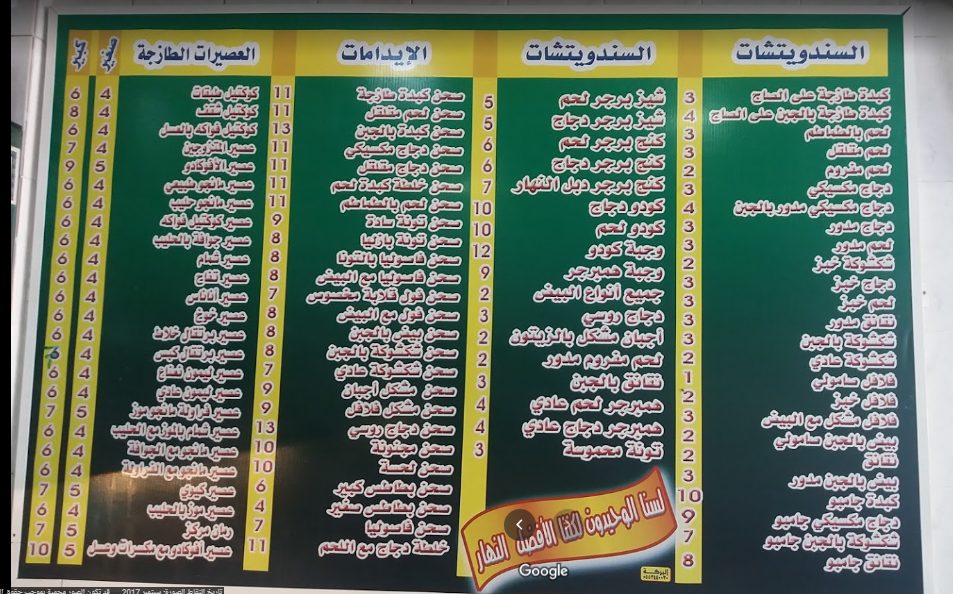 السندويتشات
كبدة طازجة على الساج 3
كبدة طازجة بالجبن على الساج 4
لحم بالطماطم 3
لحم مقلقل 3
لحم مفروم 2
دجاج مكسيكي 3
دجاج مكسيكي مدور بالجبن 4
دجاج مدور 3
لحم مدور 3
شكشوكة خبز 2
دجاج خبز 3
لحم خبز 3
نقانق مدور 3
شكشوكة بالجبن 3
شكشوكة عادي 2
فلافل سامولي 1
فلافل خبز 2
فلافل مشكل مع البيض 3
بيض بالجبن سامولي 2
نقانق 2
بيض بالجبن مدور 3
كبدة جامبو 10
دجاج مكسيكي جامبو 9
شكشوكة بالجبن جامبو 7
نقانق جامبو 8
السندويتشات
شيز برجر لحم 5
شيز برجر دجاج 5
كنج برجر لحم 6
كنج برجر دجاج 6
كنج برجر دبل النهار 7
كودو دجاج 10
كودو لحم 10
وجبة كودو 12
وجبة همبرجر 9
جميع أنواع البيض 2
دجاج روسي 3
أجبان مشكل بالزيتون 2
لحم مفروم مدور 2
نقانق بالجبن 3
همبرجر لحم عادي 4
همبرجر دجاج عادي 4
تونة محموسة 3
لسنا الوحيدون لكننا الأفضل النهار
البركة
الإيدامات
صحن كبدة طازجة 11
صحن لحم مقلقل 11
صحن كبدة بالجبن 13
صحن دجاج مكسيكي 11
صحن دجاج مقلقل 11
صحن خلطة كبدة لحم 11
صحن لحم بالطماطم 11
صحن تونة سادة 9
صحن تونة بازليا 8
صحن فاصوليا بالتونا 8
صحن فاصوليا مع البيض 8
صحن فول قلابة مخصوص 7
صحن فول مع البيض 8
صحن بيض بالجبن 8
صحن شكشوكة بالجبن 8
صحن شكشوكة عادي 7
صحن مشكل أجبان 9
صحن مشكل فلافل 9
صحن دجاج روسي 13
صحن مجنونة 10
صحن لحسة 10
صحن بطاطس كبير 6
صحن بطاطس صغير 4
صحن فاصوليا 7
خلطة دجاج مع اللحم 11
العصيرات الطازجة صغير كبير
كوكتيل طبقات 4 6
كوكتيل شقف 4 8
كوكتيل فواكه بالعسل 4 6
عصير المتزوجين 4 7
عصير الأفوكادو 5 9
عصير مانجو طبيعي 4 6
عصير مانجو حليب 4 6
عصير كوكتيل فواكه 4 6
عصير جوافة بالحليب 4 6
عصير شمام 4 6
عصير تفاح 4 6
عصير أناناس 4 6
عصير خوخ 4 6
عصير برتقال خلاط 4 6
عصير برتقال كبس 4 6
عصير ليمون نعناع 4 6
عصير ليمون عادي 4 6
عصير فراولة مانجو موز 5 7
عصير شمام بالموز مع الحليب 4 6
عصير مانجو مع الجوافة 4 6
عصير مانجو مع الفراولة 4 6
عصير كيوي 5 7
عصير موز بالحليب 4 6
رمان مركز 5 7
عصير أفوكادو مع مكسرات وعسل 5 10
Google
تاريخ التقاط الصورة: سبتمبر 2017 قد تكون الصور محمية بموجب حقوق